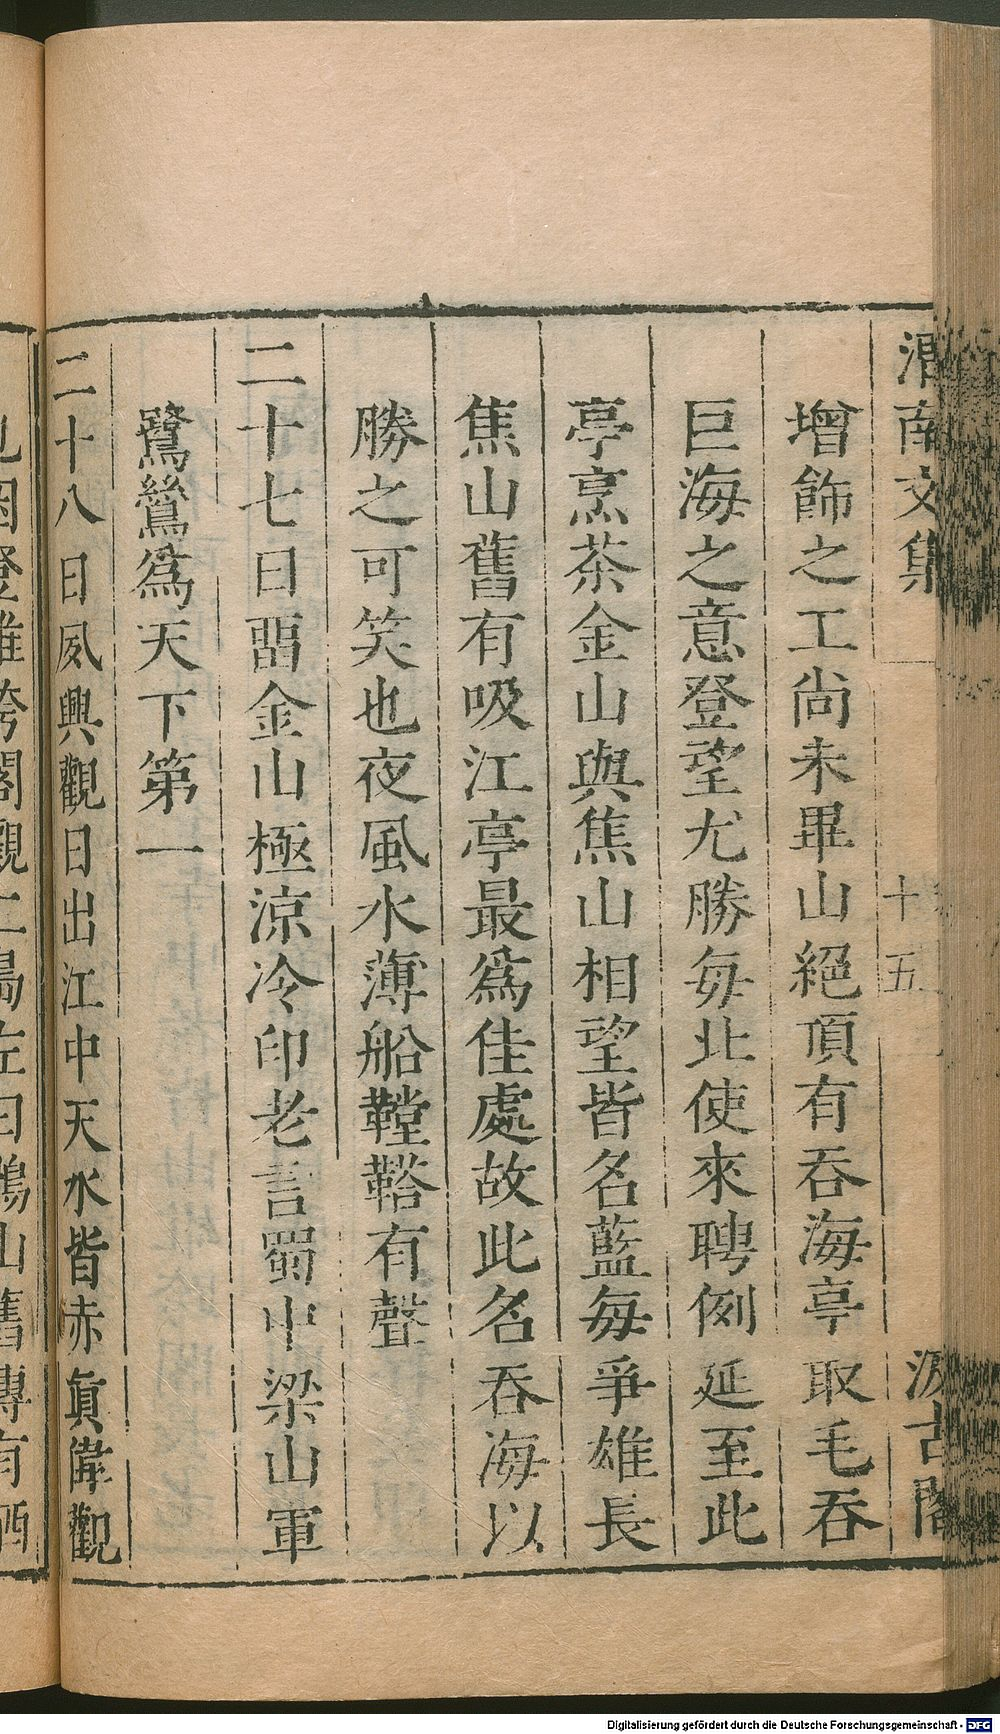 渭南文集 十五 汲古閣
增飾之工尚未畢山絕頂有吞海亭取毛吞
巨海之意登望尤勝每北使來聘例延至此
亭烹茶金山與焦山相望皆名藍每爭雄長
焦山舊有吸江亭最爲佳處故此名吞海以
勝之可笑也夜風水薄船鞺鞳有聲
二十七日畱金山極涼冷印老言蜀中梁山軍
鷺鷥爲天下第一
二十八日夙興觀日出江中天水皆赤眞偉觀
也因登雄跨閣觀二島左曰鶻山舊傳有栖
Digitalisierung gefördert durch die Deutsche Forschungsgemeinschaft - DFG